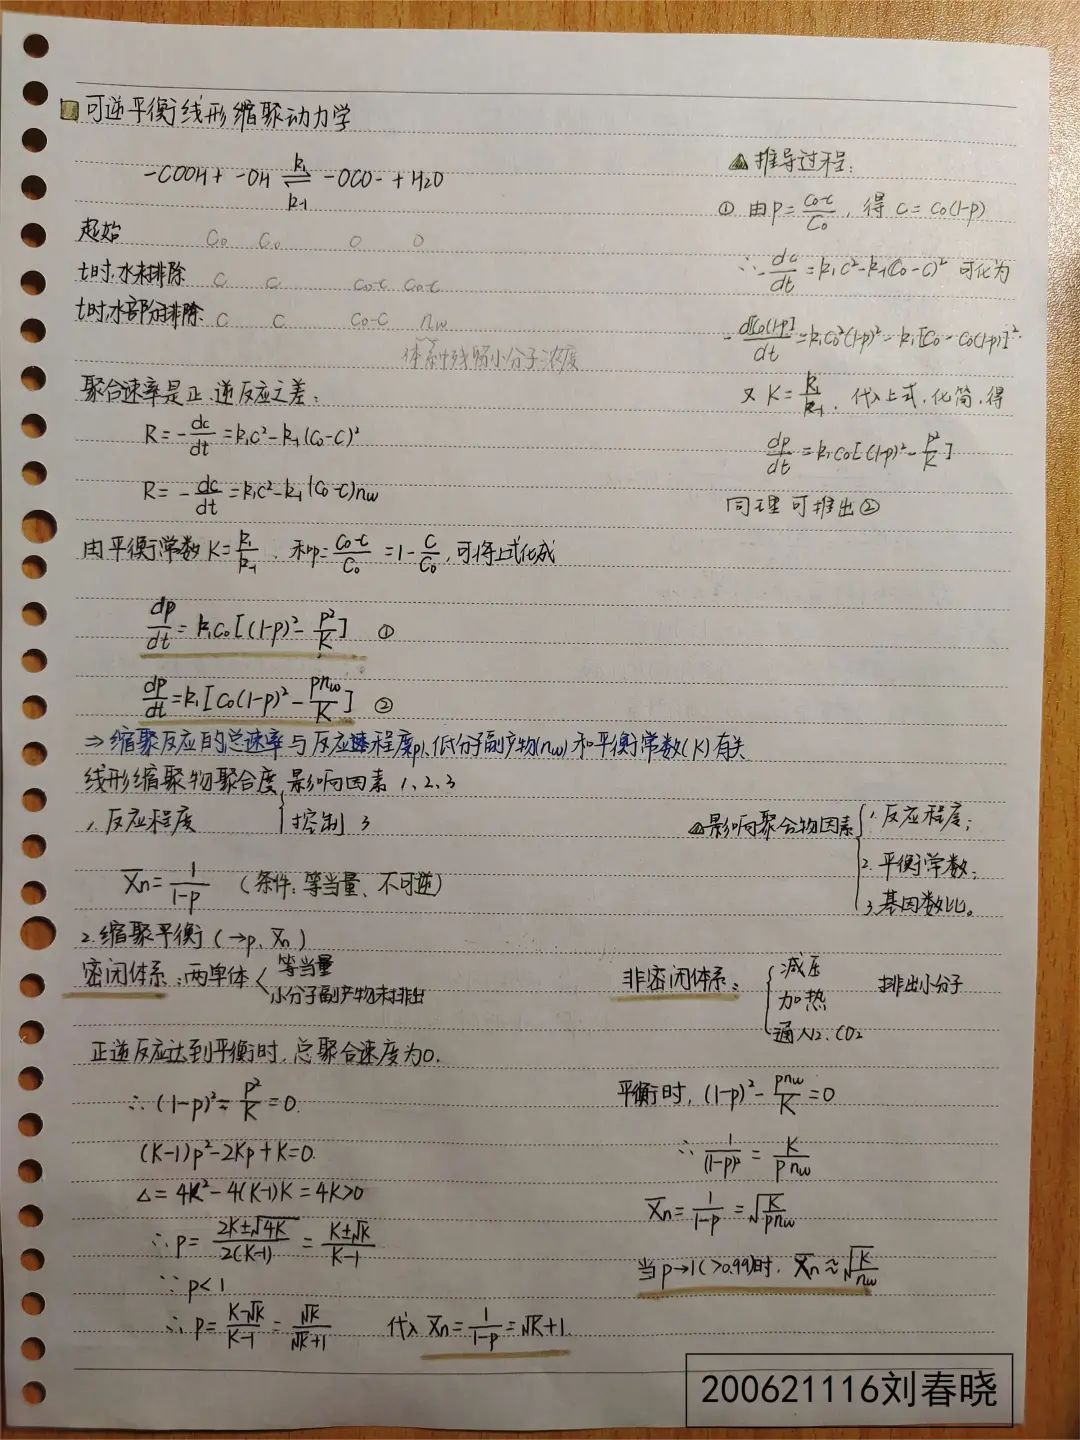 可逆平衡线形缩聚动力学
-COOH + -OH ⇌ -OCO- + H2O
k1
k-1
起始 C0 C0 0 0
t时,水未排除 C C C0-C C0-C
t时,水部分排除 C C C0-C nw
体系中残留小分子浓度
聚合速率是正、逆反应之差:
R = -dc/dt = k1c² - k-1(C0-C)²
R = -dc/dt = k1c² - k-1(C0-C)nw
由平衡常数 K = k1/k-1 、和p = (C0-C)/C0 = 1 - C/C0, 可将上式化成
dp/dt = k1C0[(1-p)² - p²/K] ①
dp/dt = k1[C0(1-p)² - pnw/K] ②
⇒ 缩聚反应的总速率与反应程度p、低分子副产物(nw)和平衡常数(K)有关
▲ 推导过程:
① 由P = (C0-C)/C0, 得 C = C0(1-p)
∴ -dc/dt = k1c² - k-1(C0-C)² 可化为
-d[C0(1-p)]/dt = k1C0²(1-p)² - k-1[C0 - C0(1-p)]²
又 K = k1/k-1, 代入上式,化简,得
dp/dt = k1C0[(1-p)² - p²/K]
同理可推出②
线形缩聚物聚合度 { 影响因素 1、2、3
控制 3
1、反应程度
X̄n = 1/(1-p) (条件:等当量、不可逆)
▲影响聚合物因素 { 1. 反应程度;
2. 平衡常数;
3. 基团数比。
2. 缩聚平衡 (→p、X̄n)
密闭体系:两单体 < 等当量
小分子副产物未排出
正逆反应达到平衡时,总聚合速度为0.
∴ (1-p)² - p²/K = 0.
(K-1)p² - 2Kp + K = 0.
△ = 4K² - 4(K-1)K = 4K>0
∴ p = (2K±√4K)/(2(K-1)) = (K±√K)/(K-1)
∵ p<1
∴ p = (K-√K)/(K-1) = √K/(√K+1) 代入 X̄n = 1/(1-p) = √K+1.
非密闭体系: { 减压
加热
通入N2、CO2
排出小分子
平衡时, (1-p)² - pnw/K = 0
∴ 1/(1-p)² = K/(pnw)
X̄n = 1/(1-p) = √(K/(pnw))
当p→1(>0.99)时, X̄n ≈ √(K/nw)
200621116刘春晓